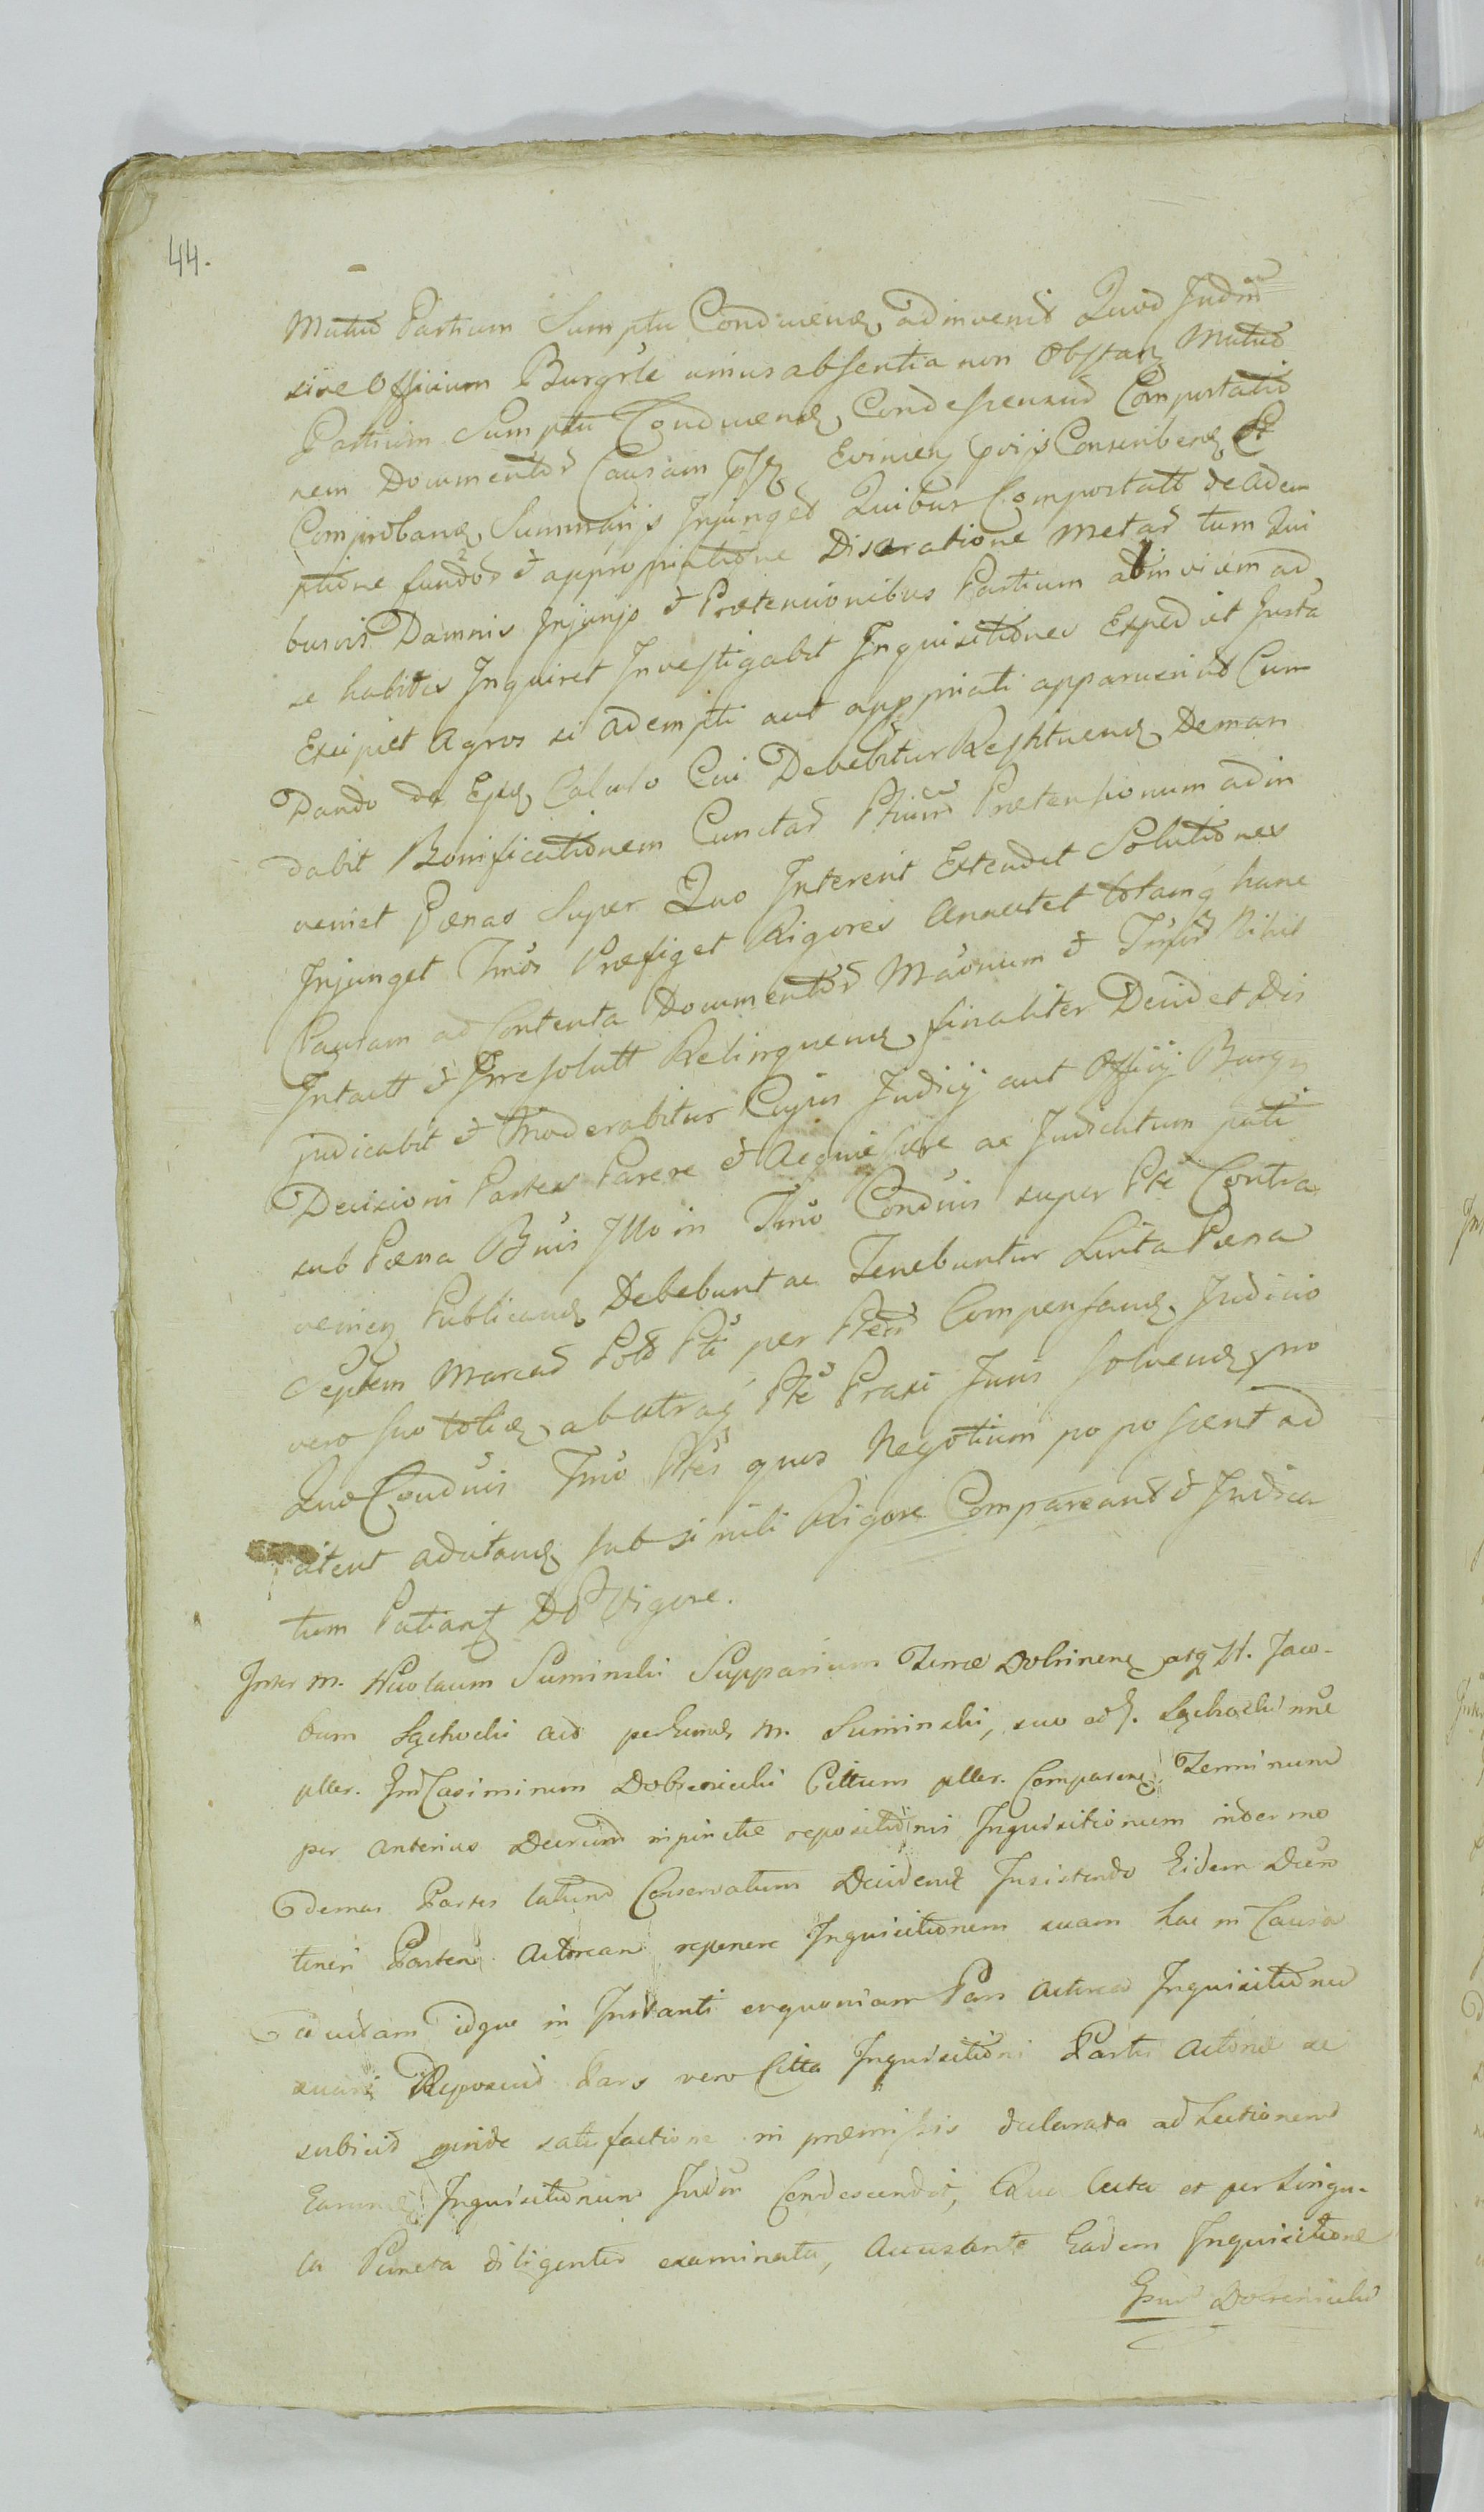 44.
Mutuo Partium Sumptu Conducend, adinvenit Quod Judm
sive Officium Burgrle unius absentia non Obstan Mutuo
Partium Sumptu Conducend, Condescensuo Comportatio
nem Documentor Causam Evincen Conscribend, Et
Comproband, Summarijs Injunget Quibus Comportatt de Adem
ptione fundor et appropriatione Disaratione metar tum Qui
busvis Damnis Injurijs et Prætensionibus Partium ab invicem ad
se habitis Inquiret Investigabit Inquisitiones Expediet Justa
Excipiet Agros si adempti aut appriati apparuerint Cum
Dando de Eys Calculo Cui Debebitur Restituend, Deman
dabit Bonificationem Cunctar Ptium Prætensionum adin
veniet Pænas super Quo Intererit Extendet Solutiones
Injunget Tmos Præfiget Rigores Annectet totamq hanc
Causam ad Contenta Documentor Mæonum et Nihil
Intactt et Irresolutt Relinquend, finaliter Decidet Dis
judicabit et Moderabitur Cujus Judicij aut Officij Burg
Decisioni Partes Parere et Acquiescere ac Judicatum pati
sub Pæna Bnis Illo in Tmo Conduis super Pte Contra
venien Publicand, Debebunt ac Tenebuntur Luita Pæna
Septem Marcar Pold Pti per Ptem Compensand, Judicio
vero suo toties, ab utraq Pte Praxi Juris solvend, pro
Quo Conduis Tmo Ptes quas Negotium poposcerit ad
citent adcitand, sub simili Rigore Compareant et Judica
tum Patiant, Dti Vigore.
Inter M. Nicolaum Suminski Supparium Terræ Dobrinens atq M. Jaco-
bum Łąchocki act personal M. Suminski, suo et Łąchocki nne
pller. Casimirum Dobrenicki Cittum pller. Comparens Terminum
per anterius Decretum repositionis Inquisitionum inter mo
dernas Partes latum Conservatum Decidend Insistendo Eidem Decro
teneri Partem Actoream reponere Inquisitionem suam hac in Causa
eductam idque in Instanti exquoniam Pars Actorea Inquisitione
suam Reposuit Pars vero Citta Inquisitioni Partis Actoreæ se
subicit proinde satisfactione in præmissis declarata ad Lectionem
Earund Inquisitionum Judm Condescendit, Qua lecta et per Singu-
la Puncta diligenter examinata, Accusante Eadem Inquisitione
Dobrenicki